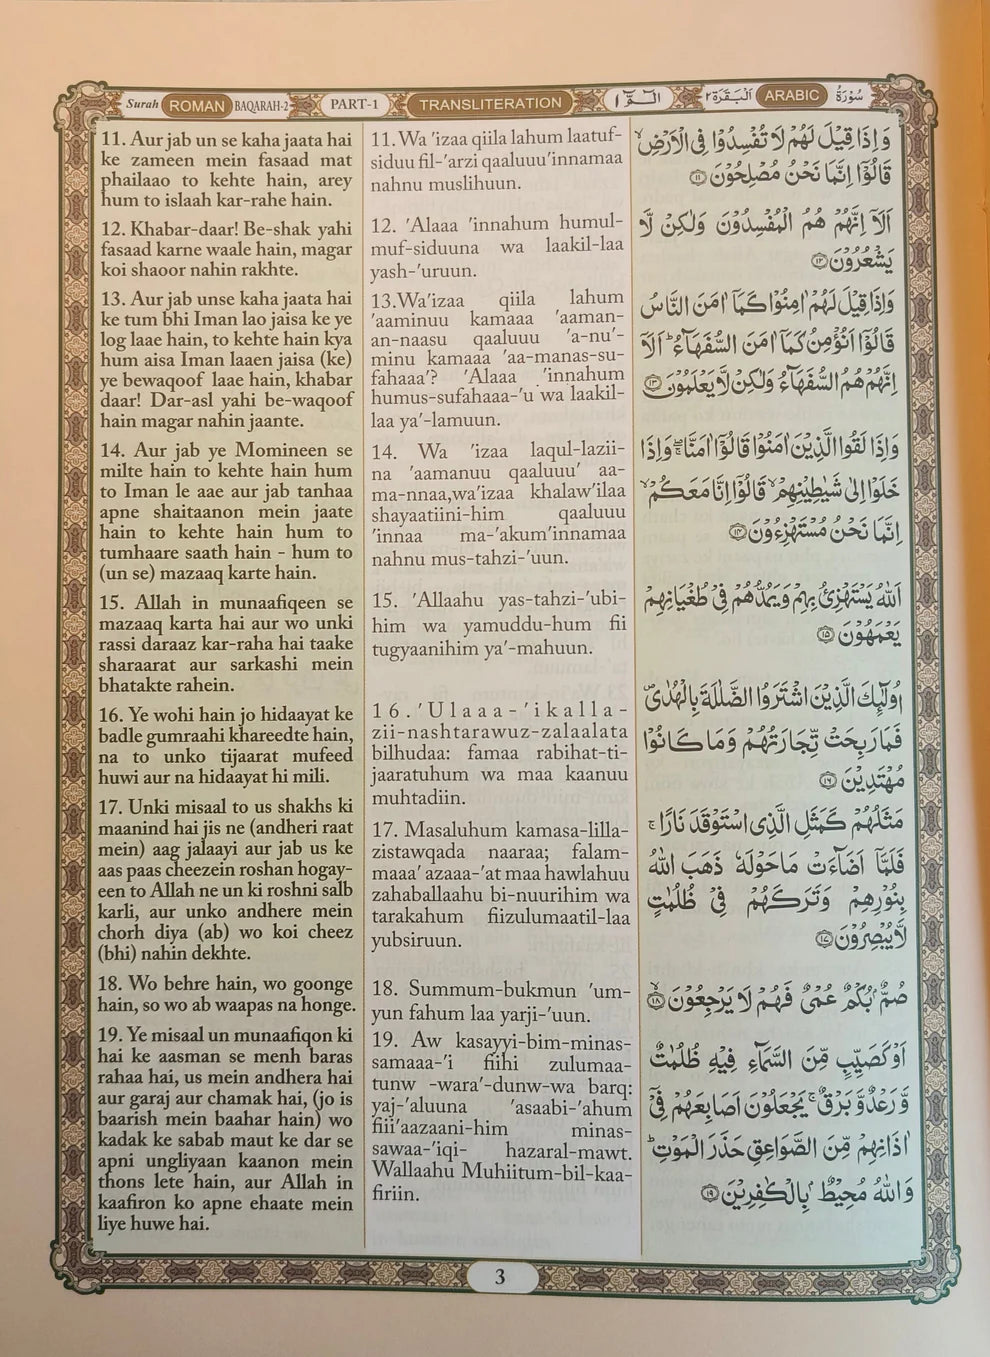 Surah ROMAN BAQARAH-2 PART-1 TRANSLITERATION الٓمّٓ ١ اَلْبَقَرَة ٢ ARABIC سُوْرَةُ
11. Aur jab un se kaha jaata hai
ke zameen mein fasaad mat
phailaao to kehte hain, arey
hum to islaah kar-rahe hain.
12. Khabar-daar! Be-shak yahi
fasaad karne waale hain, magar
koi shaoor nahin rakhte.
13. Aur jab unse kaha jaata hai
ke tum bhi Iman lao jaisa ke ye
log laae hain, to kehte hain kya
hum aisa Iman laaen jaisa (ke)
ye bewaqoof laae hain, khabar
daar! Dar-asl yahi be-waqoof
hain magar nahin jaante.
14. Aur jab ye Momineen se
milte hain to kehte hain hum
to Iman le aae aur jab tanhaa
apne shaitaanon mein jaate
hain to kehte hain hum to
tumhaare saath hain - hum to
(un se) mazaaq karte hain.
15. Allah in munaafiqeen se
mazaaq karta hai aur wo unki
rassi daraaz kar-raha hai taake
sharaarat aur sarkashi mein
bhatakte rahein.
16. Ye wohi hain jo hidaayat ke
badle gumraahi khareedte hain,
na to unko tijaarat mufeed
huwi aur na hidaayat hi mili.
17. Unki misaal to us shakhs ki
maanind hai jis ne (andheri raat
mein) aag jalaayi aur jab us ke
aas paas cheezein roshan hogay-
een to Allah ne un ki roshni salb
karli, aur unko andhere mein
chorh diya (ab) wo koi cheez
(bhi) nahin dekhte.
18. Wo behre hain, wo goonge
hain, so wo ab waapas na honge.
19. Ye misaal un munaafiqon ki
hai ke aasman se menh baras
rahaa hai, us mein andhera hai
aur garaj aur chamak hai, (jo is
baarish mein baahar hain) wo
kadak ke sabab maut ke dar se
apni ungliyaan kaanon mein
thons lete hain, aur Allah in
kaafiron ko apne ehaate mein
liye huwe hai.
11. Wa 'izaa qiila lahum laatuf-
siduu fil-'arzi qaaluuu'innamaa
nahnu muslihuun.
12. 'Alaaa 'innahum humul-
muf-siduuna wa laakil-laa
yash-'uruun.
13.Wa'izaa qiila lahum
'aaminuu kamaaa 'aaman-
an-naasu qaaluuu 'a-nu'-
minu kamaaa 'aa-manas-su-
fahaaa'? 'Alaaa 'innahum
humus-sufahaaa-'u wa laakil-
laa ya'-lamuun.
14. Wa 'izaa laqul-lazii-
na 'aamanuu qaaluuu' aa-
ma-nnaa,wa'izaa khalaw'ilaa
shayaatiini-him qaaluuu
'innaa ma-'akum'innamaa
nahnu mus-tahzi-'uun.
15. 'Allaahu yas-tahzi-'ubi-
him wa yamuddu-hum fii
tugyaanihim ya'-mahuun.
16.'Ulaaa-'ikalla-
zii-nashtarawuz-zalaalata
bilhudaa: famaa rabihat-ti-
jaaratuhum wa maa kaanuu
muhtadiin.
17. Masaluhum kamasa-lilla-
zistawqada naaraa; falam-
maaa' azaaa-'at maa hawlahuu
zahaballaahu bi-nuurihim wa
tarakahum fiizulumaatil-laa
yubsiruun.
18. Summum-bukmun 'um-
yun fahum laa yarji-'uun.
19. Aw kasayyi-bim-minas-
samaaa-'i fiihi zulumaa-
tunw -wara'-dunw-wa barq:
yaj-'aluuna 'asaabi-'ahum
fiii'aazaani-him minas-
sawaa-'iqi- hazaral-mawt.
Wallaahu Muhiitum-bil-kaa-
firiin.
وَاِذَا قِيْلَ لَهُمْ لَا تُفْسِدُوْا فِى الْاَرْضِۙ
قَالُوْٓا اِنَّمَا نَحْنُ مُصْلِحُوْنَ ۝۱۱
اَلَآ اِنَّهُمْ هُمُ الْمُفْسِدُوْنَ وَلٰكِنْ لَّا
يَشْعُرُوْنَ ۝۱۲
وَاِذَا قِيْلَ لَهُمْ اٰمِنُوْا كَمَآ اٰمَنَ النَّاسُ
قَالُوْٓا اَنُؤْمِنُ كَمَآ اٰمَنَ السُّفَهَآءُ ؕ اَلَآ
اِنَّهُمْ هُمُ السُّفَهَآءُ وَلٰكِنْ لَّا يَعْلَمُوْنَ ۝۱۳
وَاِذَا لَقُوا الَّذِيْنَ اٰمَنُوْا قَالُوْٓا اٰمَنَّا ۖۚ وَاِذَا
خَلَوْا اِلٰى شَيٰطِيْنِهِمْ ۙ قَالُوْٓا اِنَّا مَعَكُمْ ۙ
اِنَّمَا نَحْنُ مُسْتَهْزِءُوْنَ ۝۱۴
اَللّٰهُ يَسْتَهْزِئُ بِهِمْ وَيَمُدُّهُمْ فِىْ طُغْيَانِهِمْ
يَعْمَهُوْنَ ۝۱۵
اُولٰٓئِكَ الَّذِيْنَ اشْتَرَوُا الضَّلٰلَةَ بِالْهُدٰى ۪
فَمَا رَبِحَتْ تِّجَارَتُهُمْ وَمَا كَانُوْا
مُهْتَدِيْنَ ۝۱۶
مَثَلُهُمْ كَمَثَلِ الَّذِى اسْتَوْقَدَ نَارًا ۚ
فَلَمَّآ اَضَآءَتْ مَا حَوْلَهٗ ذَهَبَ اللّٰهُ
بِنُوْرِهِمْ وَتَرَكَهُمْ فِىْ ظُلُمٰتٍ
لَّا يُبْصِرُوْنَ ۝۱۷
صُمٌّۢ بُكْمٌ عُمْىٌ فَهُمْ لَا يَرْجِعُوْنَ ۝۱۸
اَوْ كَصَيِّبٍ مِّنَ السَّمَآءِ فِيْهِ ظُلُمٰتٌ
وَّرَعْدٌ وَّبَرْقٌ ۚ يَجْعَلُوْنَ اَصَابِعَهُمْ فِىْٓ
اٰذَانِهِمْ مِّنَ الصَّوَاعِقِ حَذَرَ الْمَوْتِ ؕ
وَاللّٰهُ مُحِيْطٌۢ بِالْكٰفِرِيْنَ ۝۱۹
3